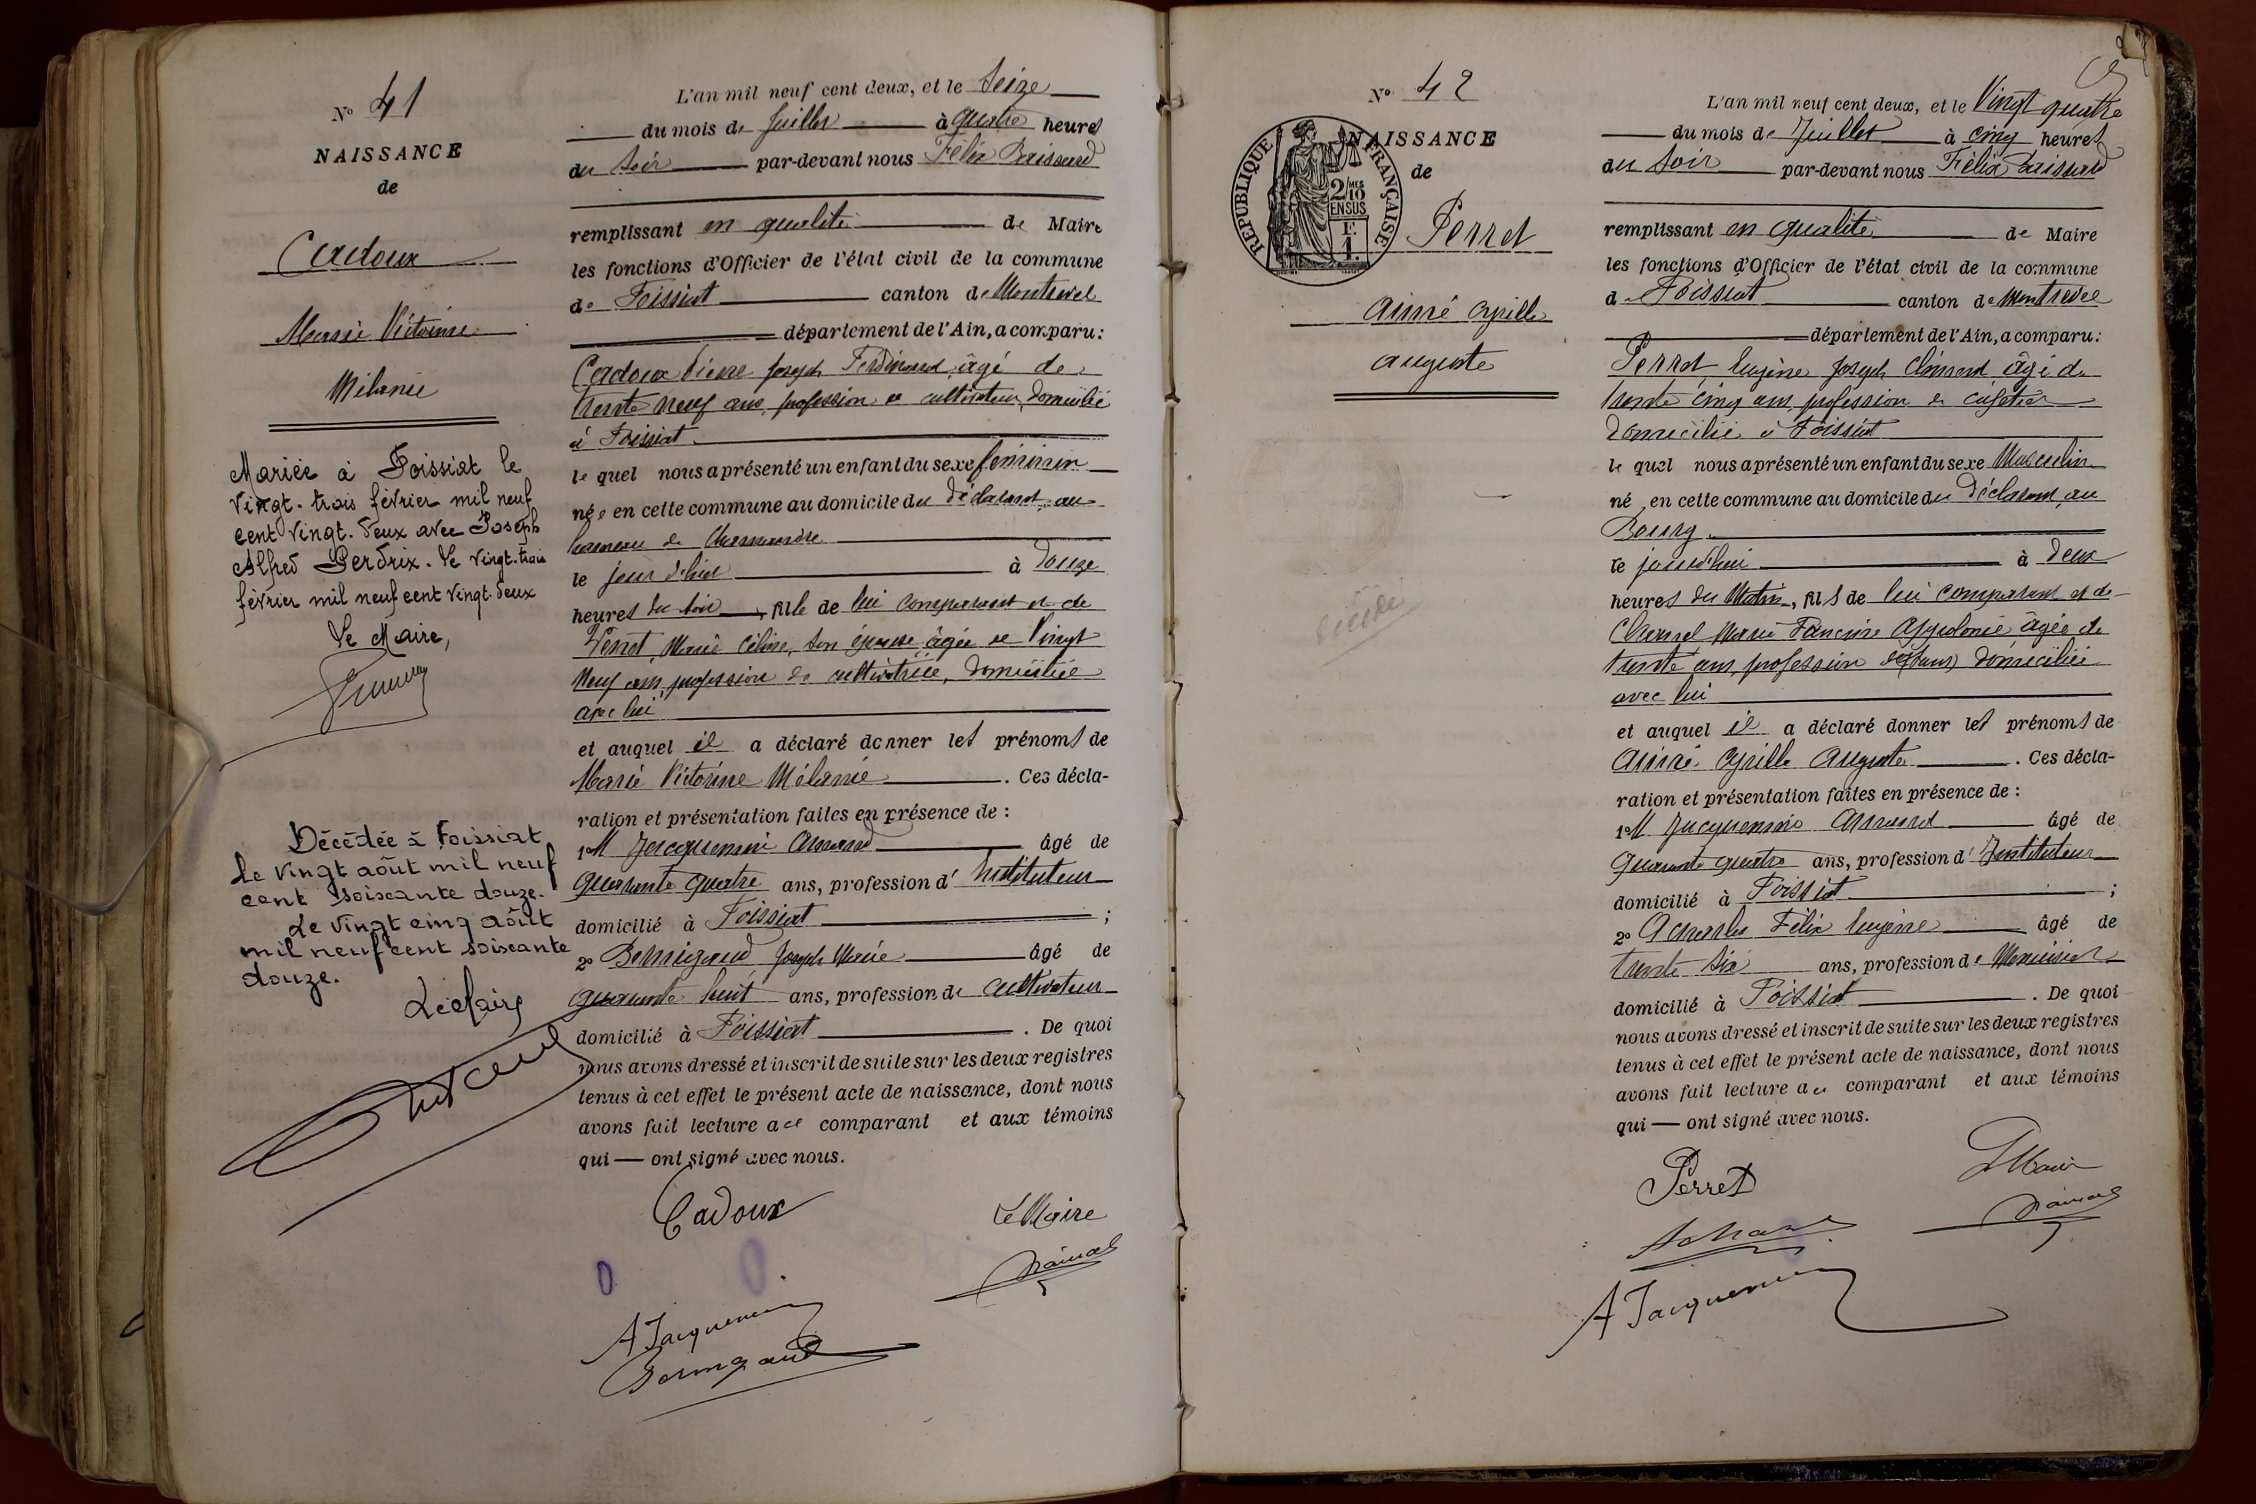 N° 41
NAISSANCE
de
Cadoux
Marie Victorine
Mélanie
Mariée à Foissiat le
vingt-trois février mil neuf
cent vingt-deux avec Joseph
Alfred Perdrix. Le vingt-trois
février mil neuf cent vingt-deux
Le Maire,
Décédée à Foissiat
le vingt août mil neuf
cent soixante douze.
Le vingt cinq août
mil neuf cent soixante
douze.
Le Maire
L'an mil neuf cent deux, et le Seize
du mois de Juillet à quatre heures
du soir par-devant nous Félix
remplissant en qualité de Maire
les fonctions d'Officier de l'état civil de la commune
de Foissiat canton de Montrevel
département de l'Ain, a comparu :
Cadoux Pierre Joseph Ferdinand, âgé de
trente neuf ans, profession de cultivateur, domicilié
à Foissiat
le quel nous a présenté un enfant du sexe féminin
née en cette commune au domicile du déclarant, au
hameau de
le jour d'hier à douze
heures du soir, fille de lui comparant et de
Marie Céline, son épouse âgée de vingt
neuf ans, profession de cultivatrice, domiciliée
avec lui
et auquel il a déclaré donner les prénoms de
Marie Victorine Mélanie. Ces décla-
ration et présentation faites en présence de :
1° M Jacquemin Armand âgé de
quarante quatre ans, profession d'Instituteur
domicilié à Foissiat ;
2° Bornigaud Joseph Marie âgé de
quarante huit ans, profession de cultivateur
domicilié à Foissiat. De quoi
nous avons dressé et inscrit de suite sur les deux registres
tenus à cet effet le présent acte de naissance, dont nous
avons fait lecture au comparant et aux témoins
qui — ont signé avec nous.
Cadoux
Le Maire
A Jacquemin
N° 42
NAISSANCE
de
REPUBLIQUE FRANÇAISE
2/10
MES
EN SUS
F.
1.
Perret
Aimé Cyrille
Auguste
décédé
L'an mil neuf cent deux, et le Vingt quatre
du mois de Juillet à cinq heures
du soir par-devant nous Félix
remplissant en qualité de Maire
les fonctions d'Officier de l'état civil de la commune
de Foissiat canton de Montrevel
département de l'Ain, a comparu :
Perret, Eugène Joseph Clément âgé de
trente cinq ans, profession de cafetier
domicilié à Foissiat
le quel nous a présenté un enfant du sexe Masculin
né en cette commune au domicile du déclarant, au
Bourg.
le jourd'hui à deux
heures du Matin, fils de lui comparant et de
Marie Francine Appolonie âgée de
trente ans, profession de (sans) domiciliée
avec lui
et auquel il a déclaré donner les prénoms de
Aimé Cyrille Auguste. Ces décla-
ration et présentation faites en présence de :
1° M Jacquemin Armand âgé de
quarante quatre ans, profession d'Instituteur
domicilié à Foissiat ;
2° Félix Eugène âgé de
trente six ans, profession de Menuisier
domicilié à Foissiat. De quoi
nous avons dressé et inscrit de suite sur les deux registres
tenus à cet effet le présent acte de naissance, dont nous
avons fait lecture au comparant et aux témoins
qui — ont signé avec nous.
Perret
Le Maire
A Jacquemin